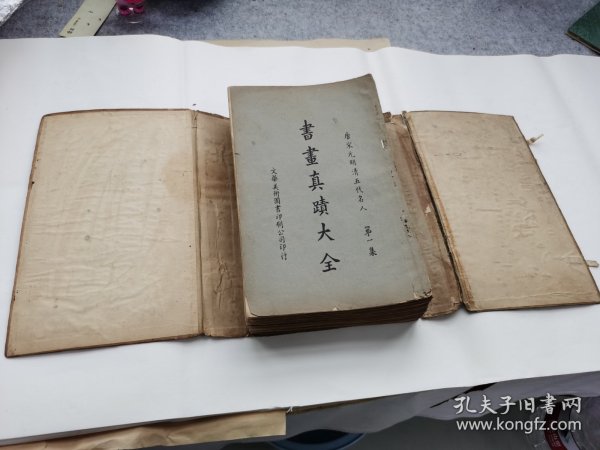 唐宋元明清五代名人 第一集
書畫真蹟大全
文華美術圖書印刷公司印行
孔夫子旧书网
www.kongfz.com